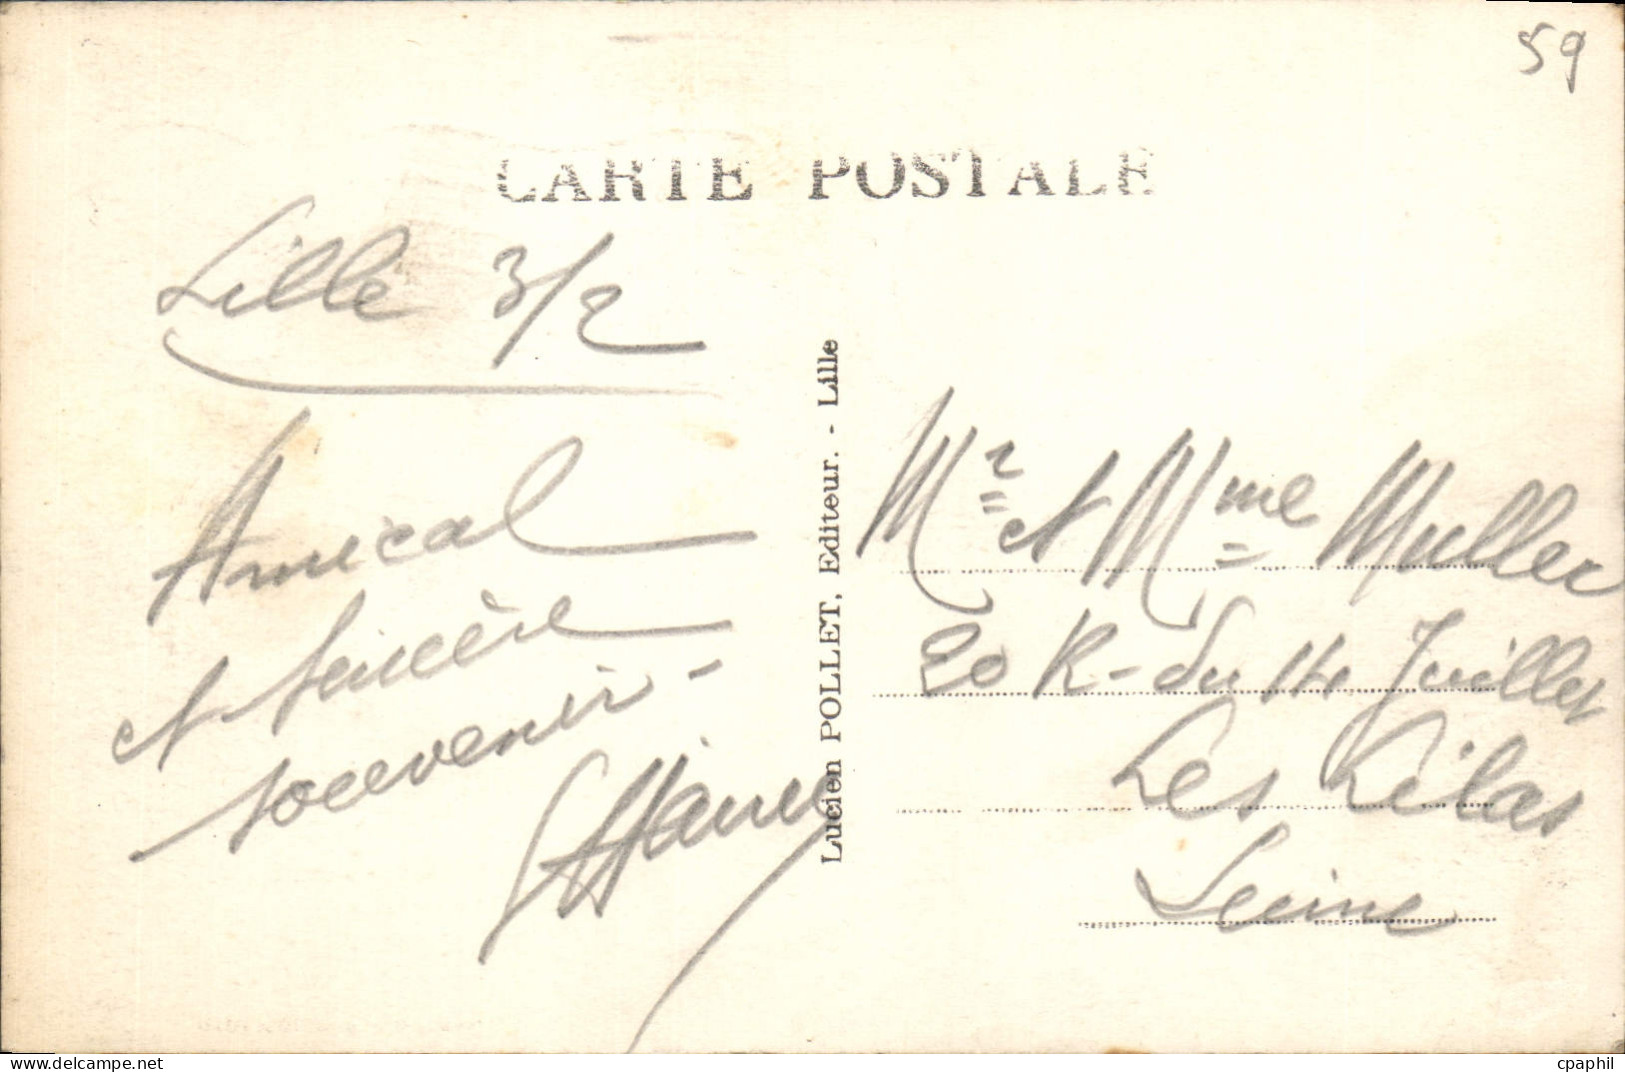 59
CARTE POSTALE
Lille 3/2
Amical
et sincère
souvenir -
Lucien POLLET, Editeur. - Lille
Mr et Mme Muller
20 R- du 14 Juillet
Les Lilas
Seine
website: DELCAMPE.net/store/cpaphil
cpaphil